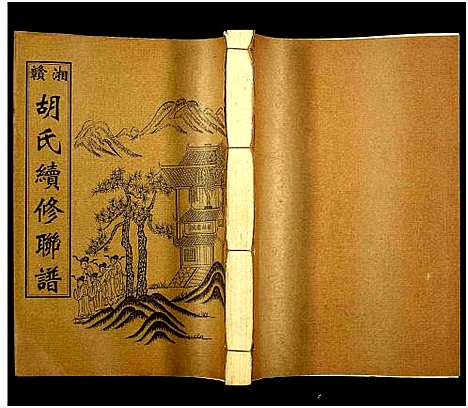 湘贛
胡氏續修聯譜